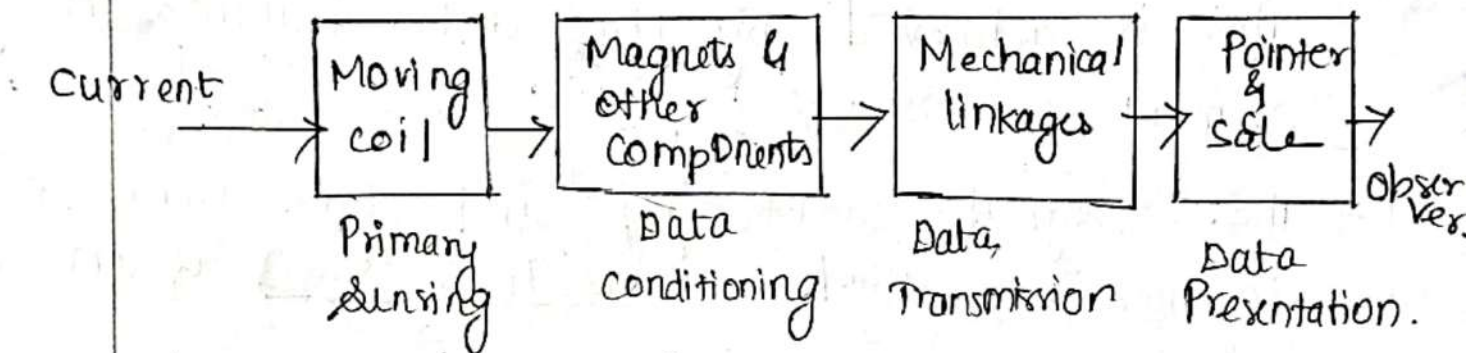 Current
Moving
coil
Magnets &
other
components
Mechanical
linkages
Pointer
&
scale
Obser
ver.
Primary
Sensing
Data
conditioning
Data,
Transmission
Data
Presentation.